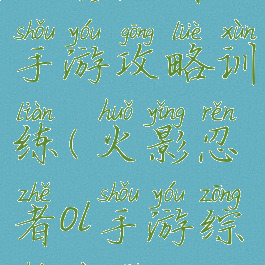 shǒu yóu gōng lüè xùn
手游攻略训
liàn huǒ yǐng rěn
练(火影忍
zhě shǒu yóu zōng
者OL手游综